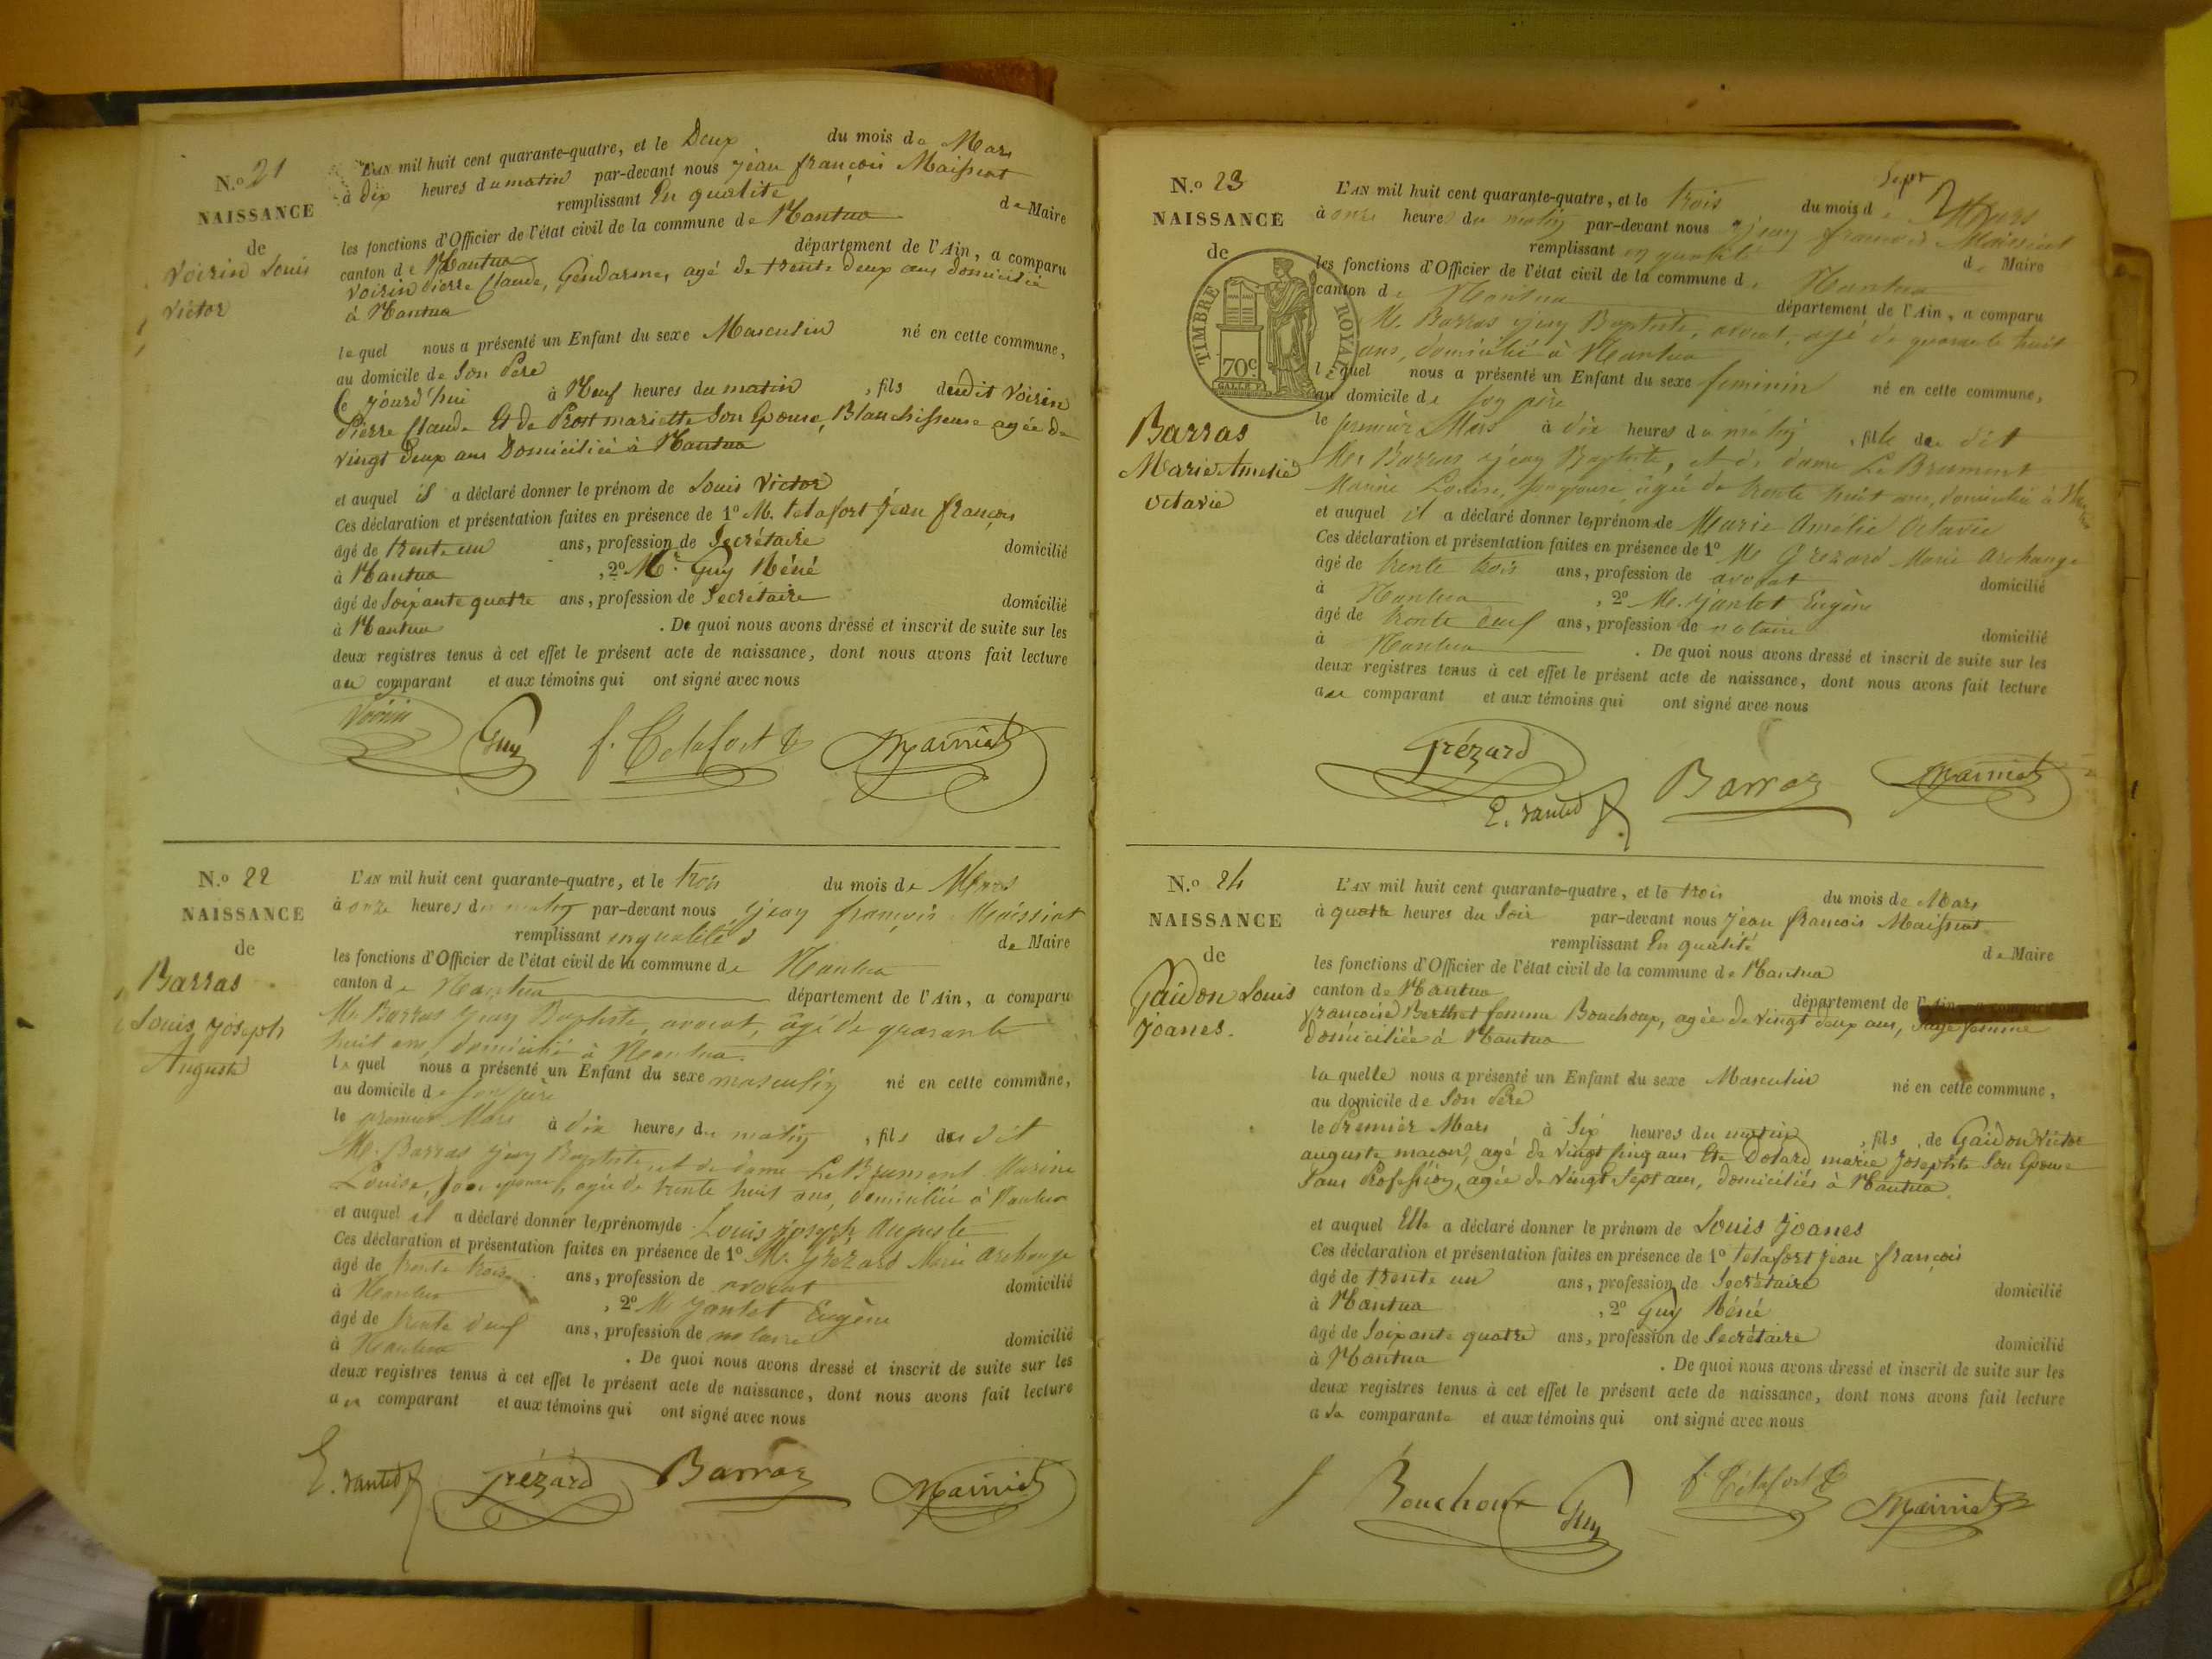 N.o 21
NAISSANCE
de
Voirin Louis
Victor
L'AN mil huit cent quarante-quatre, et le Deux du mois de Mars
à dix heures du matin par-devant nous Jean françois Maissiat
remplissant En qualité de Maire
les fonctions d'Officier de l'état civil de la commune de Nantua
canton de Nantua département de l'Ain, a comparu
Voirin Pierre Claude, Gendarme, agé de trente deux ans domicilié
à Nantua
lequel nous a présenté un Enfant du sexe Masculin né en cette commune,
au domicile de Son Père
le jourd'hui à Neuf heures du matin, fils dudit Voirin
Pierre Claude Et de Prost mariette Son Epouse, Blanchisseuse agée de
vingt deux ans Domiciliée à Nantua
et auquel il a déclaré donner le prénom de Louis Victor
Ces déclaration et présentation faites en présence de 1o M. tetafort Jean françois
âgé de trente un ans, profession de Secrétaire domicilié
à Nantua, 2o Mr. Guy Réné
âgé de Soixante quatre ans, profession de Secrétaire domicilié
à Nantua. De quoi nous avons dressé et inscrit de suite sur les
deux registres tenus à cet effet le présent acte de naissance, dont nous avons fait lecture
au comparant et aux témoins qui ont signé avec nous
Voirin Guy f. Tetafort Maissiat
N.o 22
NAISSANCE
de
Barras
Louis Joseph
Auguste
L'AN mil huit cent quarante-quatre, et le trois du mois de Mars
à onze heures du matin par-devant nous Jean françois Maissiat
remplissant en qualité de Maire
les fonctions d'Officier de l'état civil de la commune de Nantua
canton de Nantua département de l'Ain, a comparu
Mr. Barras Jean Baptiste, avocat, âgé de quarante
huit ans, domicilié à Nantua.
lequel nous a présenté un Enfant du sexe masculin né en cette commune,
au domicile de son père
le premier Mars à dix heures du matin, fils du dit
M. Barras Jean Baptiste, et de dame Le Brument Marine
Louise, son épouse, agée de trente huit ans, domiciliée à Nantua
et auquel il a déclaré donner les prénoms de Louis Joseph Auguste
Ces déclaration et présentation faites en présence de 1o M. Grézard Marie Archange
âgé de trente trois ans, profession de avocat domicilié
à Nantua, 2o M Jantet Eugène
âgé de trente neuf ans, profession de notaire domicilié
à Nantua. De quoi nous avons dressé et inscrit de suite sur les
deux registres tenus à cet effet le présent acte de naissance, dont nous avons fait lecture
au comparant et aux témoins qui ont signé avec nous
E. Jantet Grézard Barras Maissiat
Sept
N.o 23
NAISSANCE
de
TIMBRE ROYAL
70c
Barras
Marie Amélie
Octavie
L'AN mil huit cent quarante-quatre, et le trois du mois de Mars
à onze heures du matin par-devant nous Jean françois Maissiat
remplissant en qualité de Maire
les fonctions d'Officier de l'état civil de la commune de Nantua
canton de Nantua département de l'Ain, a comparu
Mr. Barras Jean Baptiste, avocat, agé de quarante huit
ans, domicilié à Nantua
lequel nous a présenté un Enfant du sexe feminin né en cette commune,
au domicile de son père
le premier Mars à dix heures du matin, fille du dit
Mr. Barras Jean Baptiste, et de dame Le Brument
Marine Louise, son épouse, âgée de trente huit ans, domiciliée à Nantua
et auquel il a déclaré donner les prénom de Marie Amélie Octavie
Ces déclaration et présentation faites en présence de 1o M Grezard Marie Archange
âgé de trente trois ans, profession de avocat domicilié
à Nantua, 2o M. Jantet Eugène
âgé de trente neuf ans, profession de notaire domicilié
à Nantua. De quoi nous avons dressé et inscrit de suite sur les
deux registres tenus à cet effet le présent acte de naissance, dont nous avons fait lecture
au comparant et aux témoins qui ont signé avec nous
Grézard E. Jantet Barras Maissiat
N.o 24
NAISSANCE
de
Gaidon Louis
Joanes.
L'AN mil huit cent quarante-quatre, et le trois du mois de Mars
à quatre heures du Soir par-devant nous Jean françois Maissiat
remplissant En qualité de Maire
les fonctions d'Officier de l'état civil de la commune de Nantua
canton de Nantua département de l'Ain, a comparu
françoise Berthet femme Bouchoux, agée de vingt deux ans, Sage femme
domiciliée à Nantua
laquelle nous a présenté un Enfant du sexe Masculin né en cette commune,
au domicile de Son Père
le Premier Mars à Six heures du matin, fils de Gaidon Victor
auguste macon, agé de vingt cinq ans Et Dotard marie Josephte Son Epouse
Sans Profession, agée de vingt Sept ans, domiciliés à Nantua.
et auquel Elle a déclaré donner le prénom de Louis Joanes
Ces déclaration et présentation faites en présence de 1o tetafort Jean françois
âgé de trente un ans, profession de Secrétaire domicilié
à Nantua, 2o Guy Réné
âgé de Soixante quatre ans, profession de Secrétaire domicilié
à Nantua. De quoi nous avons dressé et inscrit de suite sur les
deux registres tenus à cet effet le présent acte de naissance, dont nous avons fait lecture
a la comparante et aux témoins qui ont signé avec nous
f Bouchoux Guy f. Tétafort Maissiat